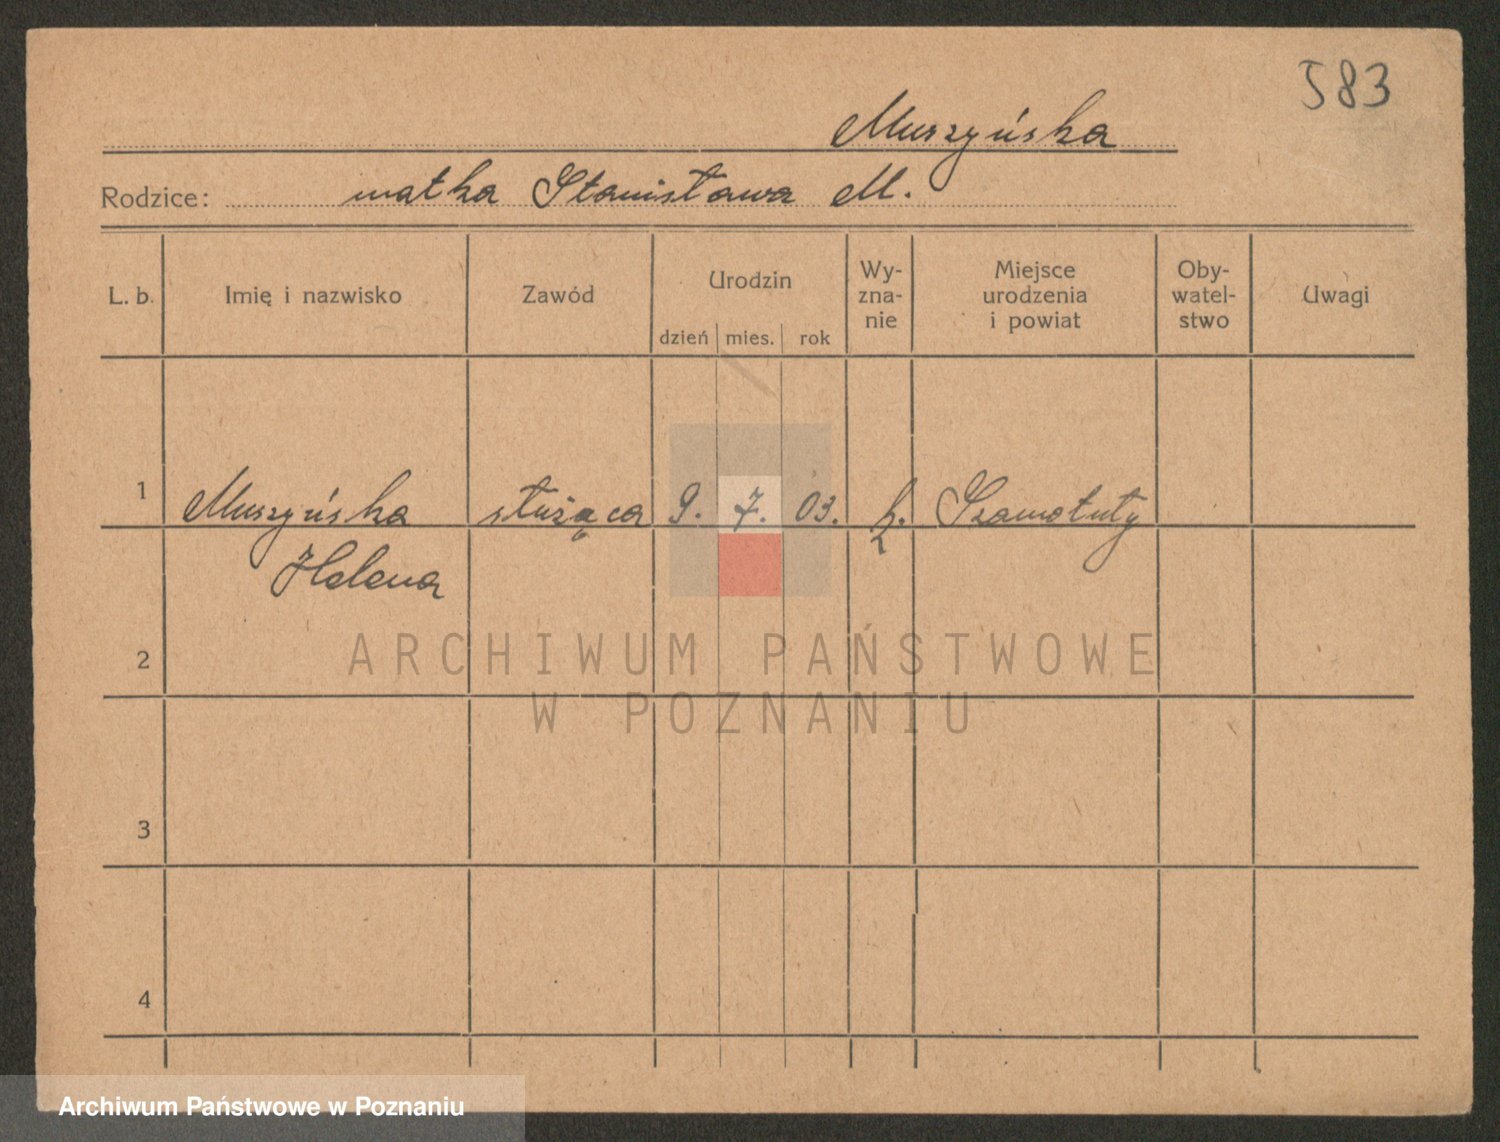 583
Muszyńska
Rodzice: matka Stanisława M.
L. b. Imię i nazwisko Zawód Urodzin dzień mies. rok Wy-zna-nie Miejsce urodzenia i powiat Oby-watel-stwo Uwagi
1 Muszyńska służąca 9. 7. 03. k. Szamotuły
Helena
2
3
4
ARCHIWUM PAŃSTWOWE
W POZNANIU
Archiwum Państwowe w Poznaniu